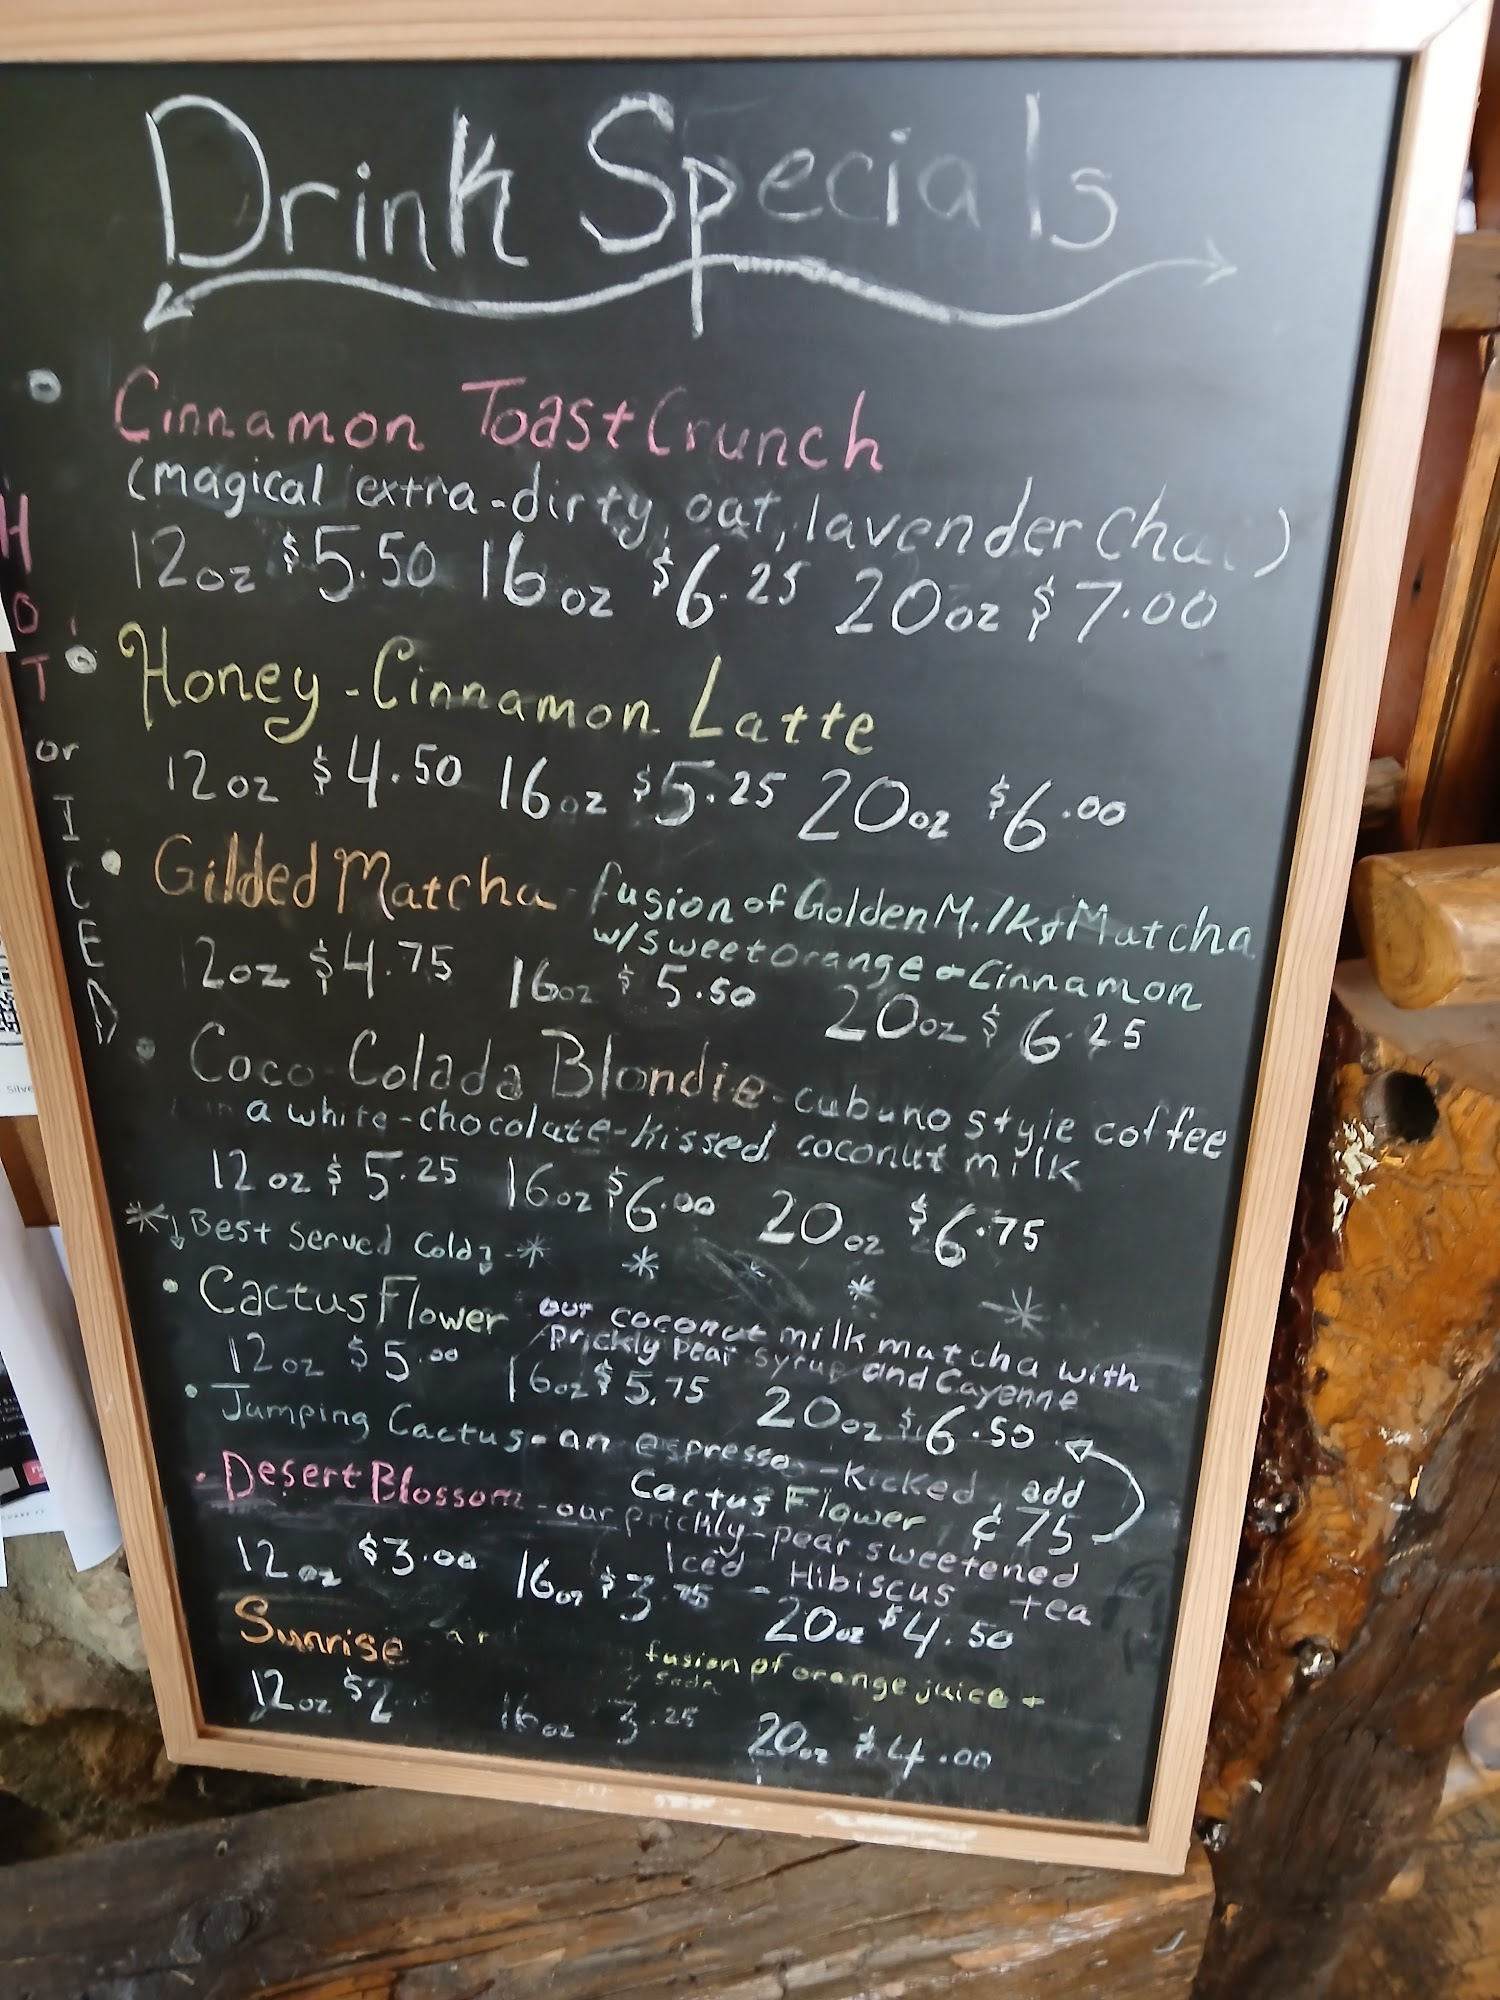 Drink Specials
HOT or ICED
Cinnamon Toast Crunch
(magical extra-dirty, oat, lavender Chai)
12oz $5.50 16oz $6.25 20oz $7.00
Honey-Cinnamon Latte
12oz $4.50 16oz $5.25 20oz $6.00
Gilded Matcha - fusion of Golden Milk & Matcha
w/ sweet orange & Cinnamon
12oz $4.75 16oz $5.50 20oz $6.25
Coco-Colada Blondie - cubano style coffee
in a white-chocolate-kissed coconut milk
12oz $5.25 16oz $6.00 20oz $6.75
* Best Served Cold * * * *
Cactus Flower our coconut milk matcha with
Prickly Pear syrup and Cayenne
12oz $5.00 16oz $5.75 20oz $6.50
Jumping Cactus - an espresso-kicked
Cactus Flower add ¢75
Desert Blossom - our prickly-pear sweetened
Iced - Hibiscus tea
12oz $3.00 16oz $3.75 20oz $4.50
Sunrise fusion of orange juice &
soda
12oz $2 16oz 3.25 20oz $4.00